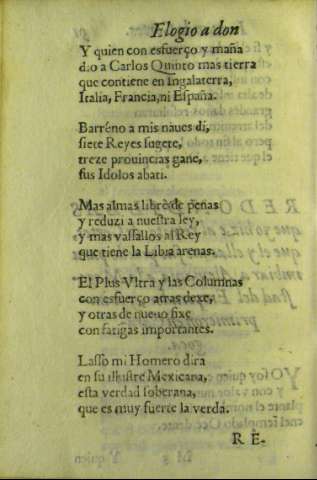 Elogio a don
Y quien con esfuerço y maña
dio a Carlos Quinto mas tierra
que contiene en Ingalaterra,
Italia, Francia, ni España.
Barreno a mis naues di,
siete Reyes sugete,
treze prouincias gane,
sus Idolos abati.
Mas almas libre de penas
y reduzi a nuestra ley,
y mas vassallos al Rey
que tiene la Libia arenas.
El Plus Vltra y las Colunnas
con esfuerço atras dexe,
y otras de nueuo fixe
con fatigas importantes.
Lasso mi Homero dira
en su illustre Mexicana,
esta verdad soberana,
que es muy fuerte la verda.
R E-